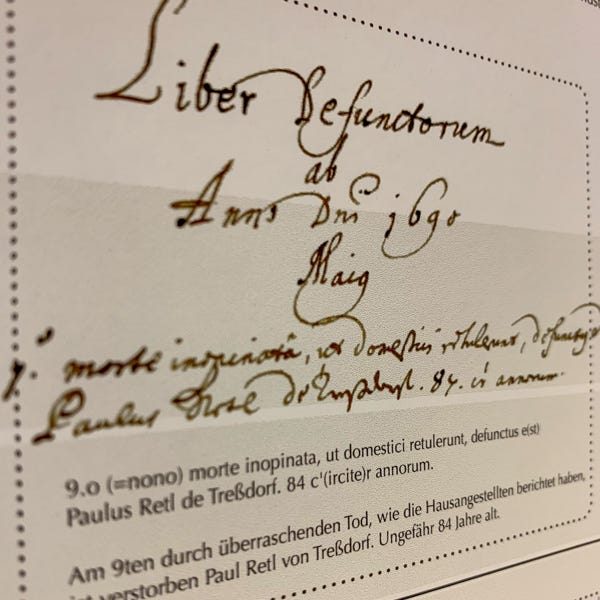 Liber Defunctorum
ab
Anno Dni 1690
Maig
9.o morte inopinata, ut domestici retulerunt, defunctus
Paulus Retl de Treßdorf. 84. cr annorum.
9.o (=nono) morte inopinata, ut domestici retulerunt, defunctus e(st)
Paulus Retl de Treßdorf. 84 c'(ircite)r annorum.
Am 9ten durch überraschenden Tod, wie die Hausangestellten berichtet haben,
ist verstorben Paul Retl von Treßdorf. Ungefähr 84 Jahre alt.